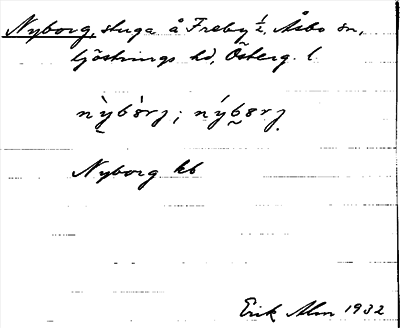 Nyborg, stuga å Freby 1/2, Åsbo sn,
Göstrings hd, Österg. l.
Nyborg kb
Erik Alm 1932